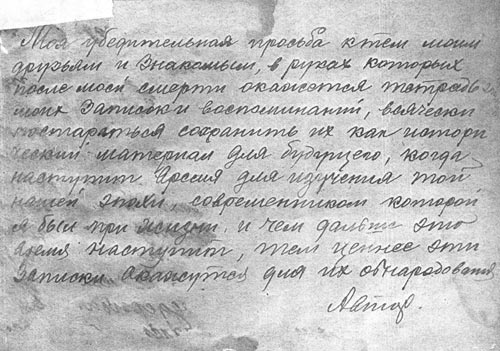 Моя убедительная просьба к тем моим
друзьям и знакомым, в руках которых
после моей смерти окажется тетрадь
моих записок и воспоминаний, всячески
постараться сохранить их как истори
ческий материал для будущего, когда
наступит время для изучения той
нашей эпохи, современником которой
я был при жизни. и чем дальше это
время наступит, тем ценнее эти
записки окажутся для их обнародования
Автор.